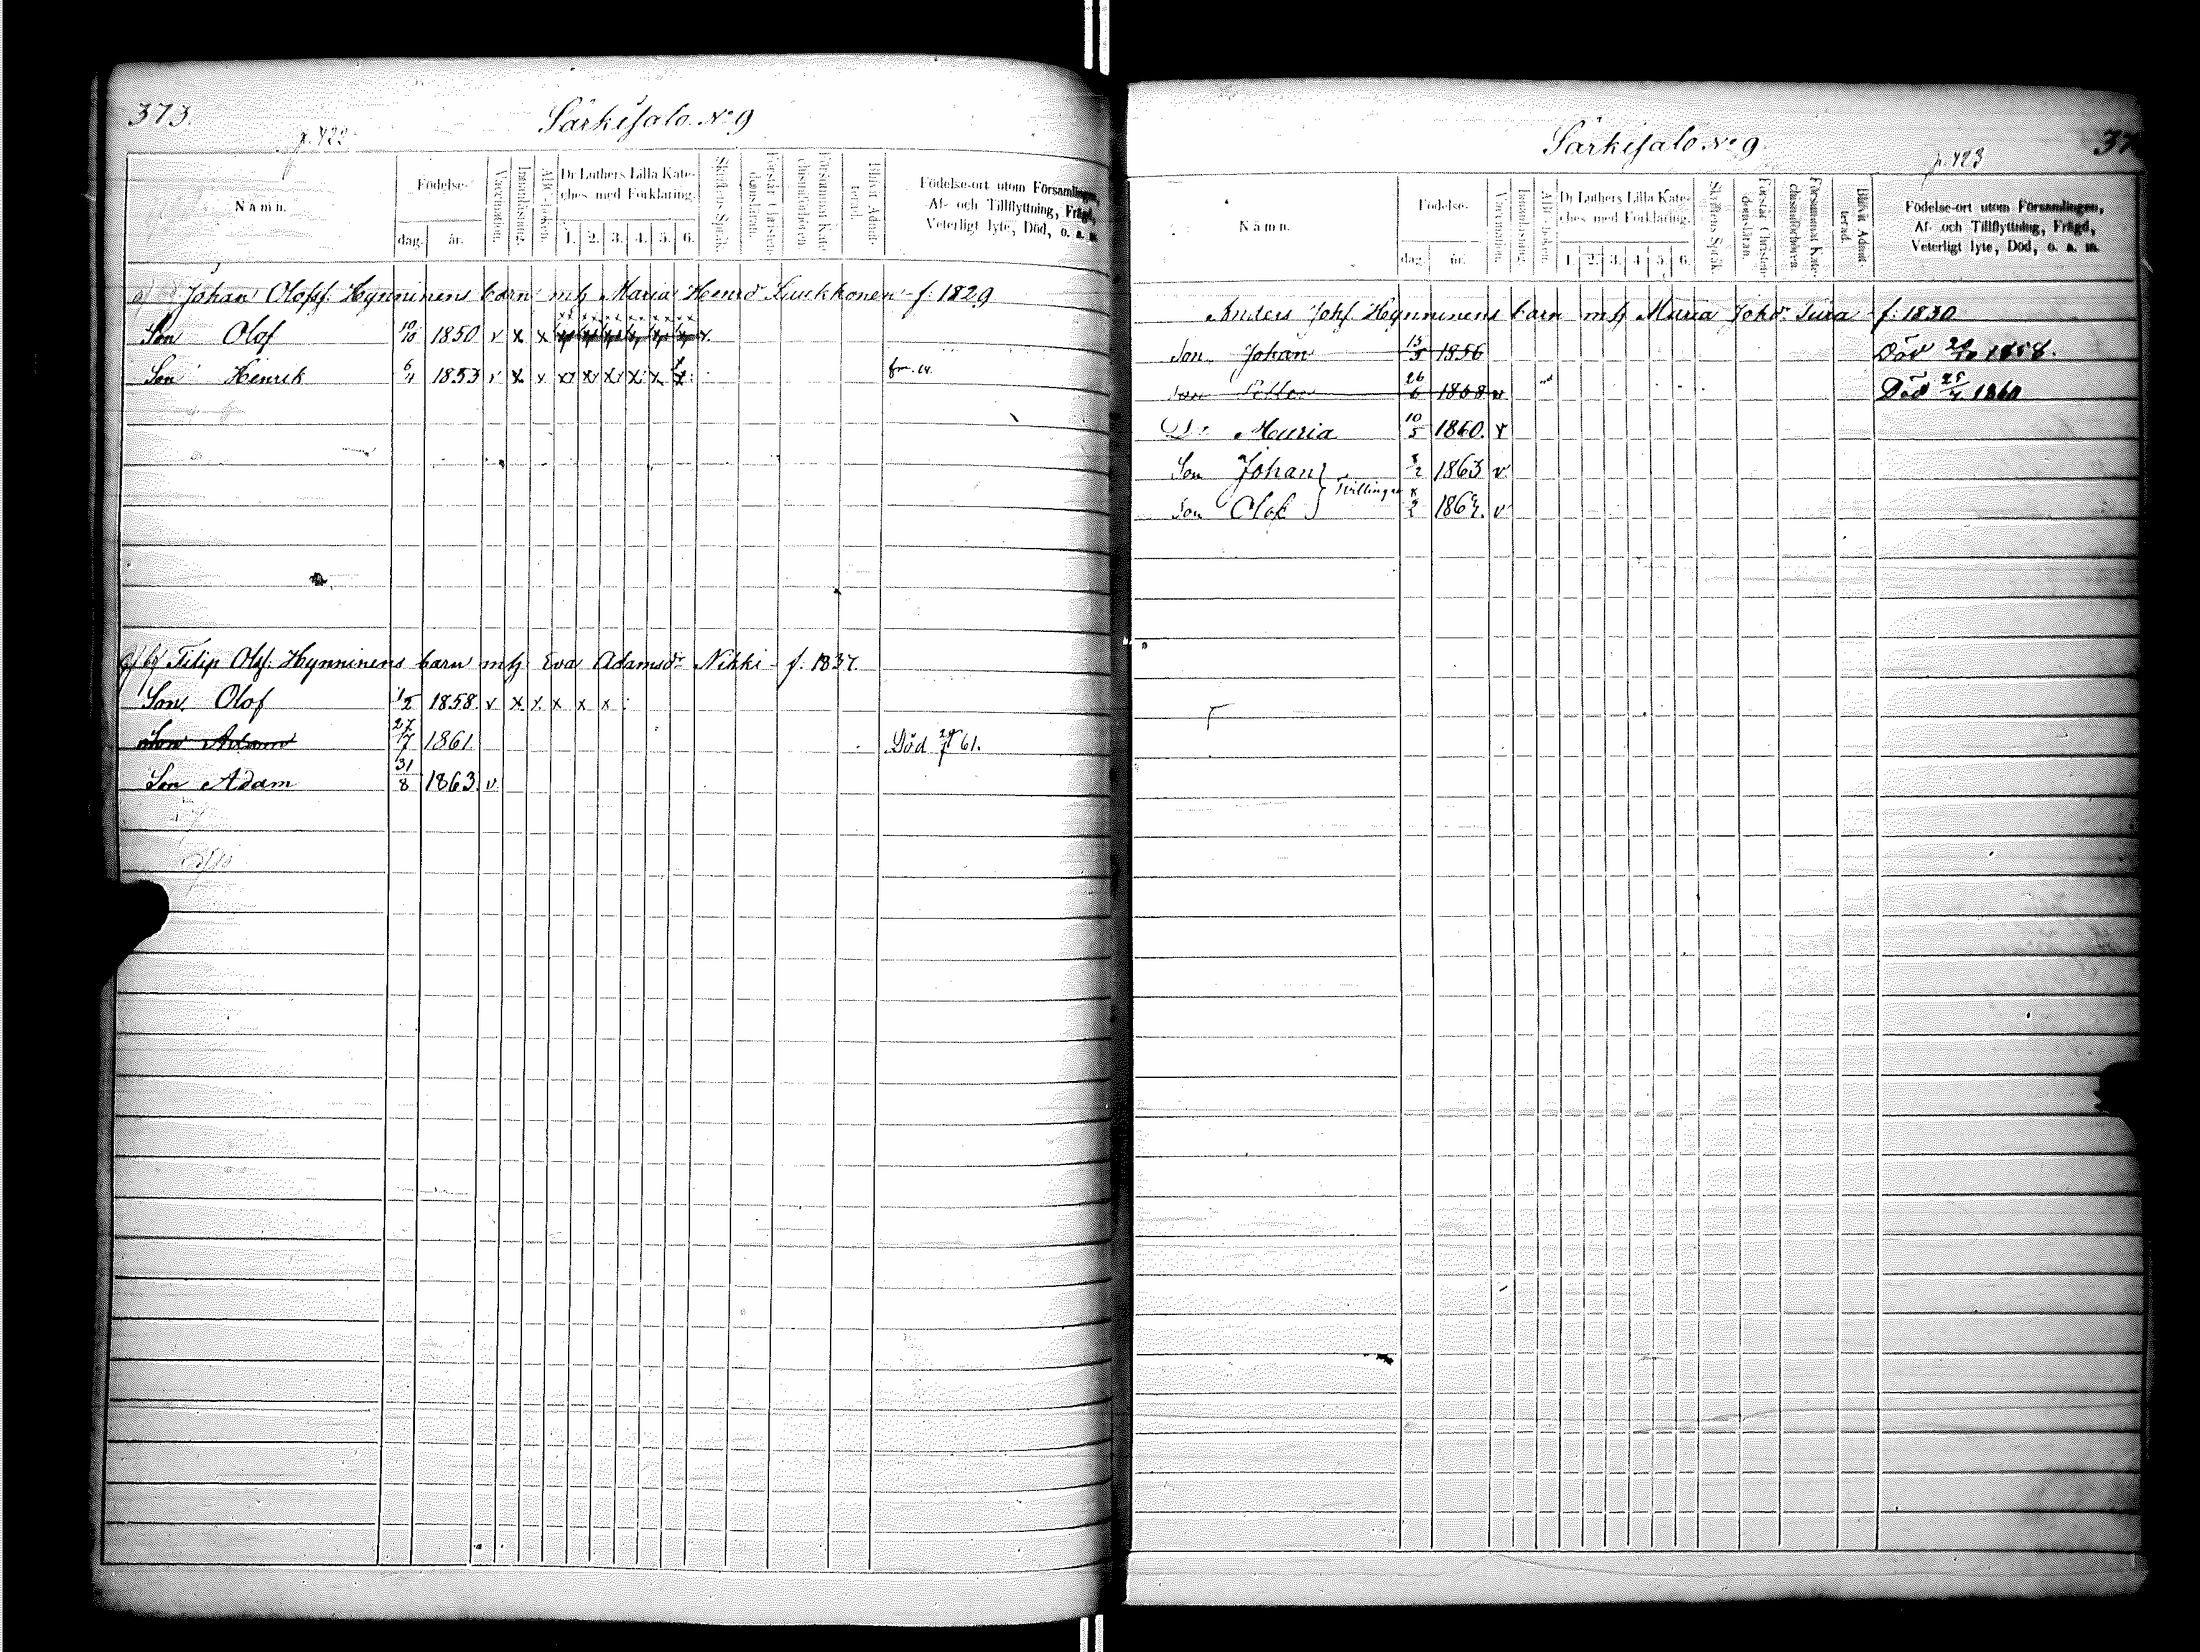 373.
Särkisalo. No 9
p. 422
Namn.
Födelse-
dag. år.
Vaccination.
Innanläsning.
ABC-boken.
Dr Luthers Lilla Kate-
ches med Förklaring.
1. 2. 3. 4. 5. 6.
Skriftens Språk.
Förstår Christen-
domsläran.
Försummat Kate-
chismiförhören.
Blifvit Admit-
terad.
Födelse-ort utom Församlingen,
Af- och Tillflyttning, Frägd,
Veterligt lyte, Död, o. a. m.
Johan Olofss. Hynninens barn mh Maria Henrd f. 1829
Son Olof 10/10 1850 v x x
Son Henrik 6/4 1853 v x v
Filip Olss. Hynninens barn mh Eva Adamsdr Nikki - f. 1837.
Son Olof 1/2 1858. v x x x x x
Son Adam 27/7 1861. Död 29/7 61.
Son Adam 31/8 1863. v
Särkisalo No 9
37
p. 423
Namn.
Födelse-
dag. år.
Vaccination.
Innanläsning.
ABC-boken.
Dr Luthers Lilla Kate-
ches med Förklaring.
1. 2. 3. 4. 5. 6.
Skriftens Språk.
Förstår Christen-
domsläran.
Försummat Kate-
chismiförhören.
Blifvit Admit-
terad.
Födelse-ort utom Församlingen,
Af- och Tillflyttning, Frägd,
Veterligt lyte, Död, o. a. m.
Anders Johs Hynninens barn mh Maria Johdr f. 1830
Son Johan 15/5 1856 Död 1858.
Son Petter 26/6 1858 v Död 1860
Dr Maria 10/5 1860. v
Son Johan 1863 v
Tvillingar
Son Olof 186 v